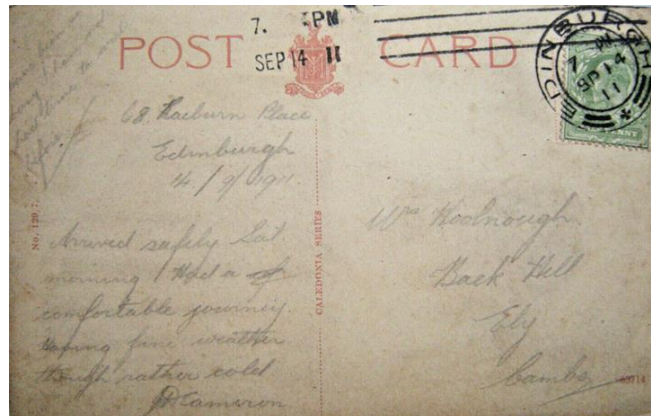 POST CARD
7. PM
SEP 14 11
EDINBURGH
7 M
SP 14
11
PENNY
68 Raeburn Place
Edinburgh
14/9/1911.
Arrived safely Sat
morning Had a
comfortable journey.
Having fine weather
though rather cold
Cameron
No. 120
CALEDONIA SERIES
Woolnough
Back Hill
Ely
Cambs